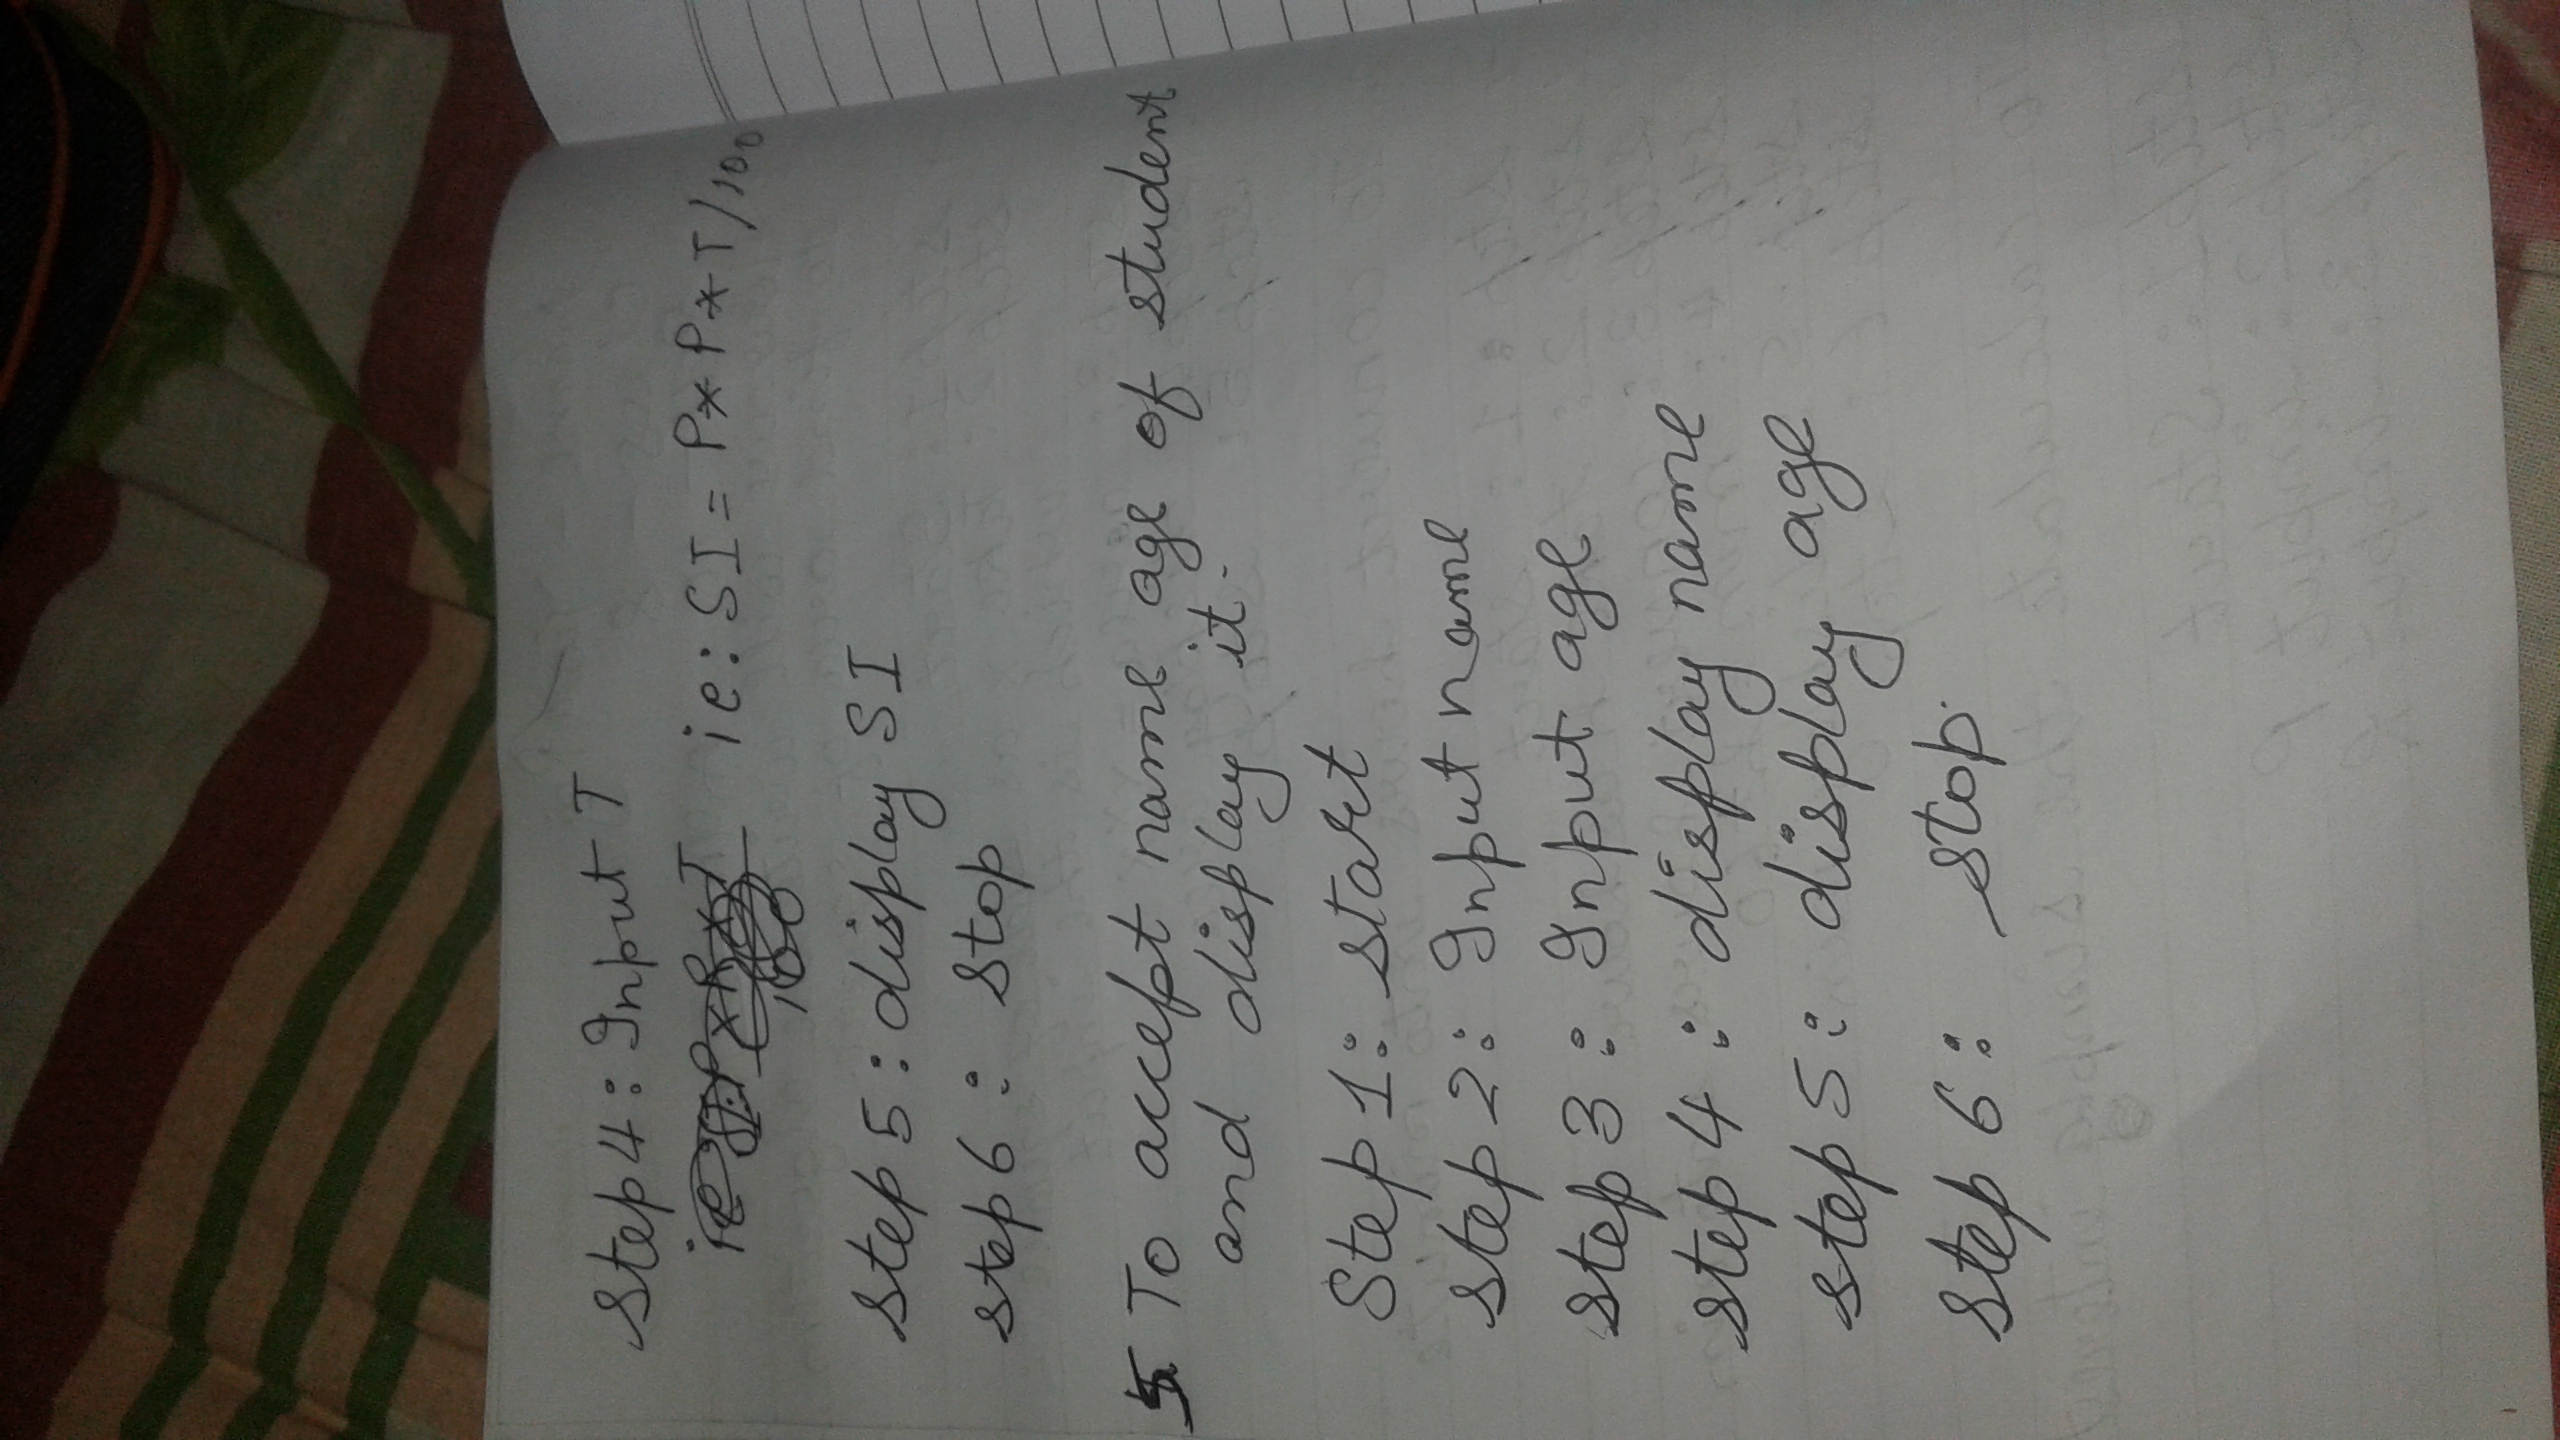 Step 4: Input T
ie: SI = P* P* T/100
Step 5: display SI
step 6: Stop
5. To accept name age of student
and display it.
Step 1: start
step 2: Input name
step 3: Input age
step 4: display name
step 5: display age
step 6: stop.